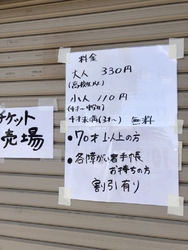 チケット
売場
料金
大人 330円
(高校生以上)
小人 110円
(4才~中学生)
4才未満(3才~) 無料
・70才以上の方
・各障がい者手帳
お持ちの方
割引有り